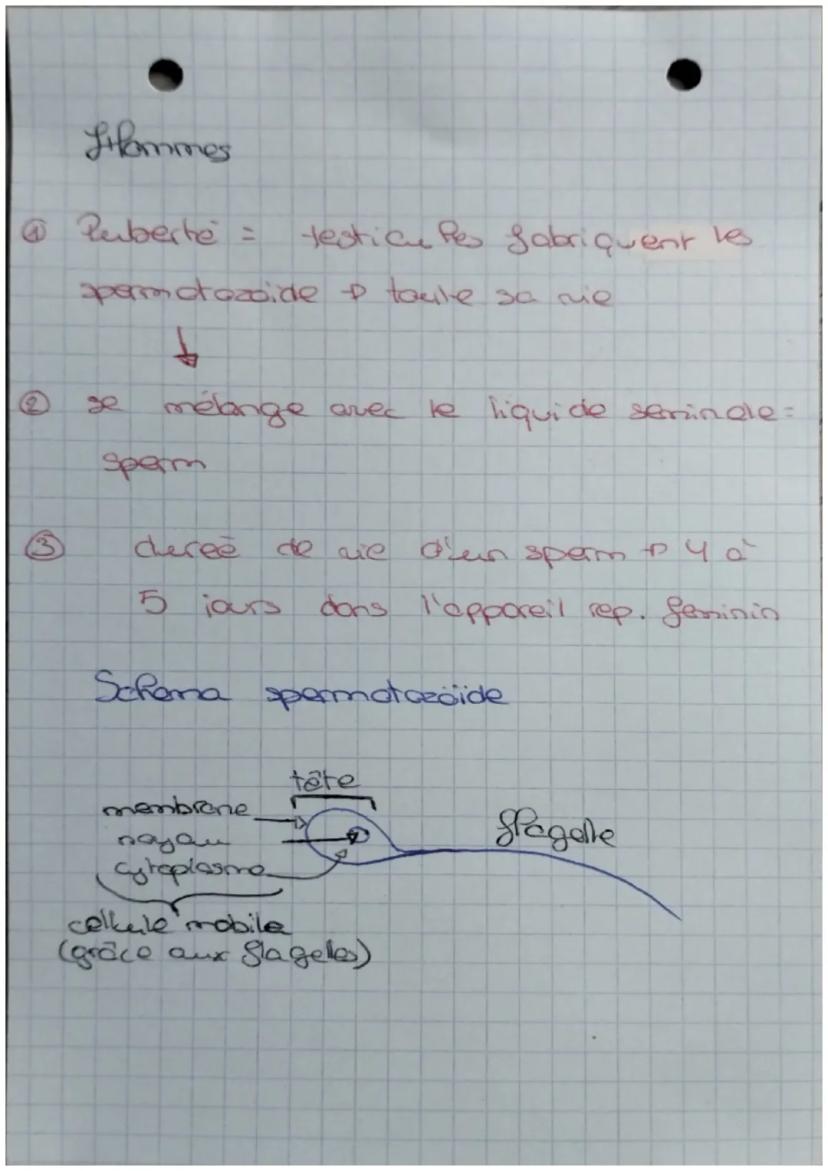 Hommes
① Puberté = testicules fabriquent les
spermatozoide → toute sa vie
↓
② se mélange avec le liquide seminale =
sperm
③ dureé de vie d'un sperm → 4 à
5 jours dans l'appareil rep. feminin
Schema spermatozoïde
tête
membrane
noyau
cytoplasme
flagelle
cellule mobile
(grâce aux flagelles)